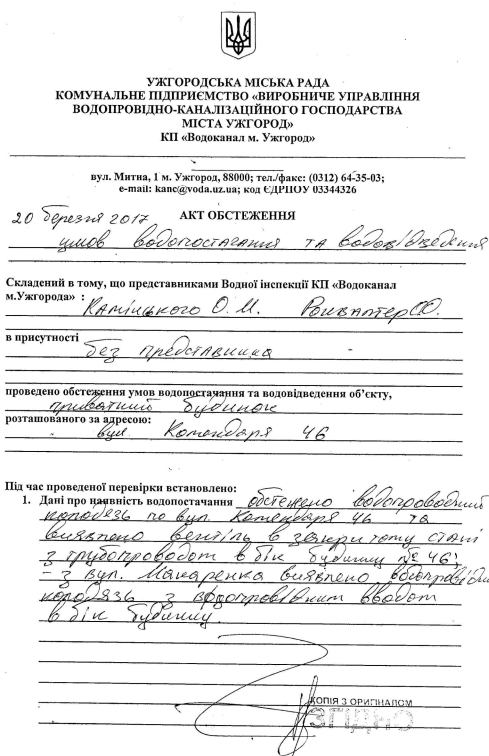 УЖГОРОДСЬКА МІСЬКА РАДА
КОМУНАЛЬНЕ ПІДПРИЄМСТВО «ВИРОБНИЧЕ УПРАВЛІННЯ
ВОДОПРОВІДНО-КАНАЛІЗАЦІЙНОГО ГОСПОДАРСТВА
МІСТА УЖГОРОД»
КП «Водоканал м. Ужгород»
вул. Митна, 1 м. Ужгород, 88000; тел./факс: (0312) 64-35-03;
e-mail: kanc@voda.uz.ua; код ЄДРПОУ 03344326
20 березня 2017 АКТ ОБСТЕЖЕННЯ
умов водопостачання та водовідведення
Складений в тому, що представниками Водної інспекції КП «Водоканал
м.Ужгорода» :
Камінського О. М.
в присутності
без представника
проведено обстеження умов водопостачання та водовідведення об'єкту,
приватний будинок
розташованого за адресою:
вул. Комендаря 46
Під час проведеної перевірки встановлено:
1. Дані про наявність водопостачання обстежено водопровідний
колодязь по вул. Комендаря 46 та
виявлено вентіль в закритому стані
з трубопроводом в бік будинку № 46;
- з вул. Макаренка виявлено водопровідний
колодязь з водопровідним вводом
в бік будинку.
КОПІЯ З ОРИГІНАЛОМ
ЗГІДНО